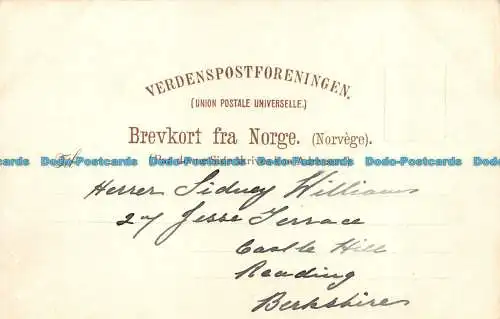 VERDENSPOSTFORENINGEN.
(UNION POSTALE UNIVERSELLE.)
Brevkort fra Norge. (Norvège).
Dodo-Postcards Dodo-Postcards Dodo-Postcards Dodo-Postcards Dodo-Postcards
Herrer Sidney Williams
27 Jesse Terrace
Castle Hill
Reading
Berkshire